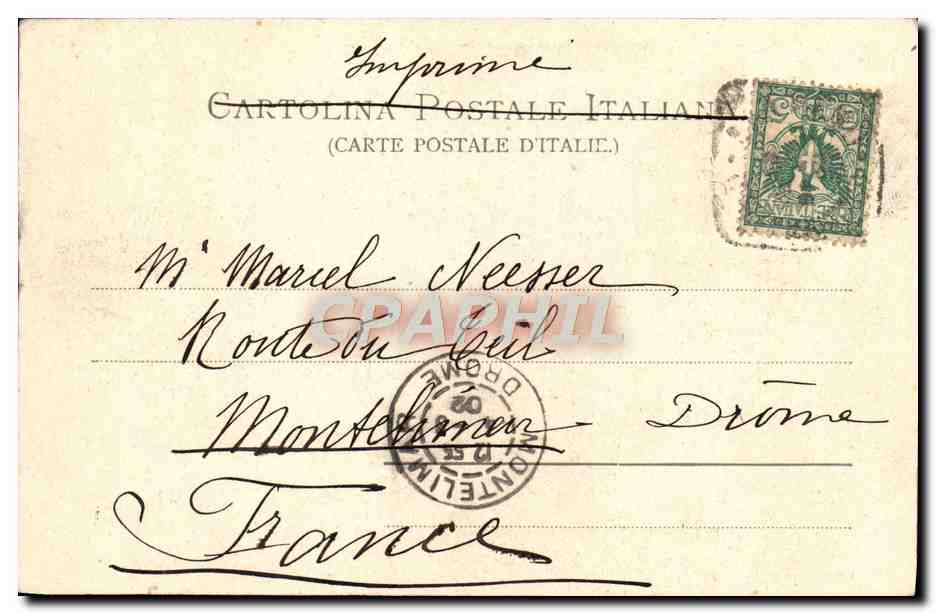 Imprimé
CARTOLINA POSTALE ITALIANA
(CARTE POSTALE D'ITALIE.)
Mr Marcel Neesser
CPARPHIL
Route du Teil
Montelimar Drôme
France
MONTELIMAR
DROME
12 55
02